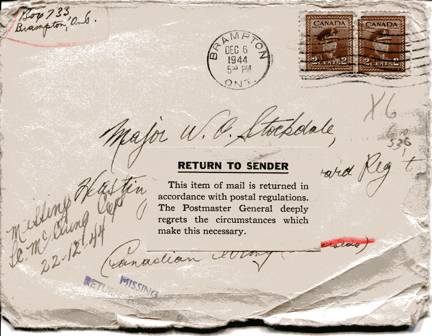 Box 733
Brampton, Ont.
BRAMPTON
DEC 6
5 PM
1944
ONT.
CANADA CANADA
2 CENTS 2 CENTS
X6
Major W. O. Stockdale,
RETURN TO SENDER
This item of mail is returned in
accordance with postal regulations.
The Postmaster General deeply
regrets the circumstances which
make this necessary.
Hastin
ard Regt
Missing
22-12-44
(Canadian Army
MISSING
RETU